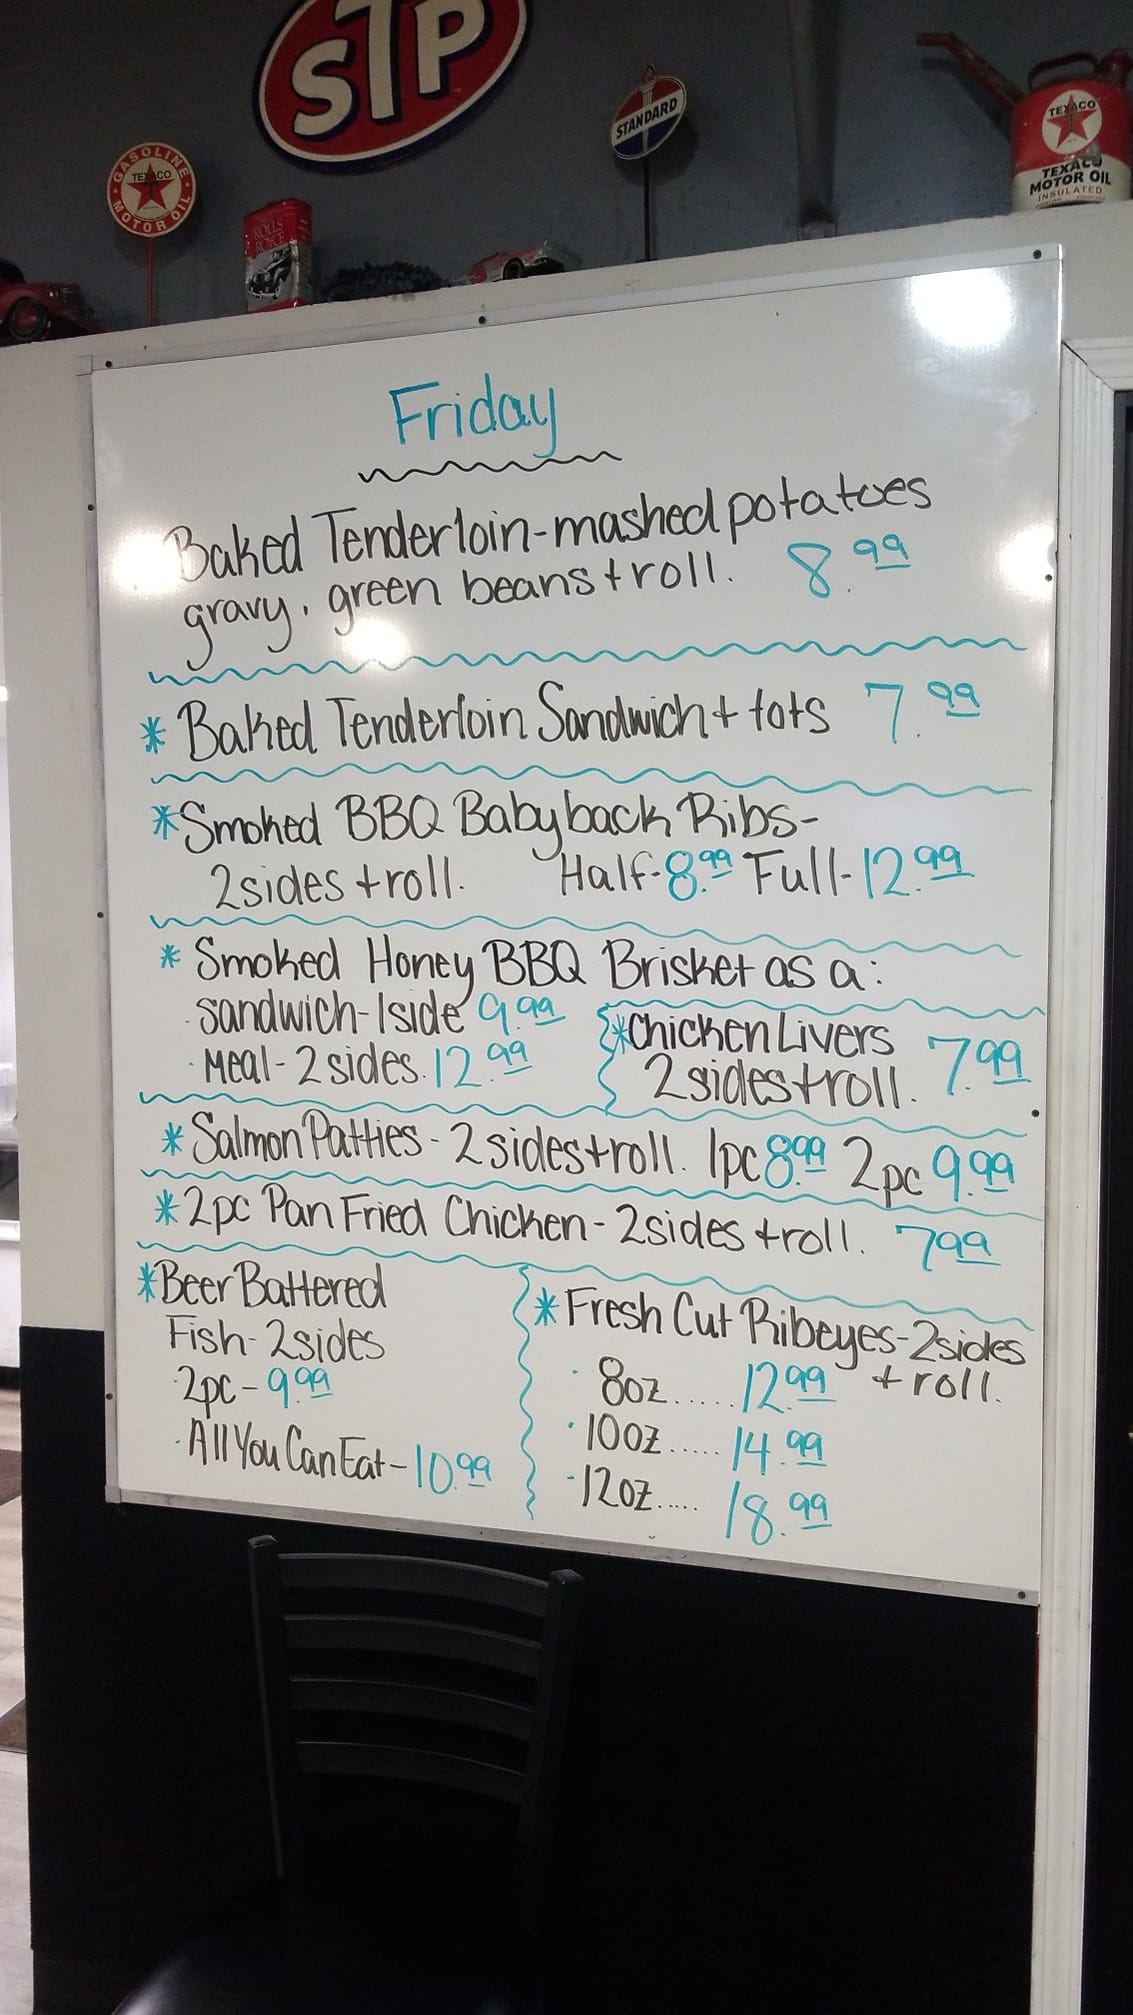 STP
STANDARD
GASOLINE
TEXACO
MOTOR OIL
ROLLS
ROYCE
TEXACO
TEXACO
MOTOR OIL
INSULATED
Friday
Baked Tenderloin-mashed potatoes
gravy, green beans + roll. 8.99
* Baked Tenderloin Sandwich + tots 7.99
*Smoked BBQ Babyback Ribs-
2sides + roll. Half-8.99 Full-12.99
* Smoked Honey BBQ Brisket as a:
· sandwich-1side 9.99
· Meal-2 sides. 12.99
*Chicken Livers
2sides+roll. 7.99
* Salmon Patties - 2sides+roll. 1pc 8.99 2pc 9.99
*2pc Pan Fried Chicken - 2sides + roll. 7.99
*Beer Battered
Fish-2sides
·2pc-9.99
·All You Can Eat-10.99
* Fresh Cut Ribeyes-2sides
+ roll.
· 8oz...... 12.99
· 10oz..... 14.99
· 12oz..... 18.99